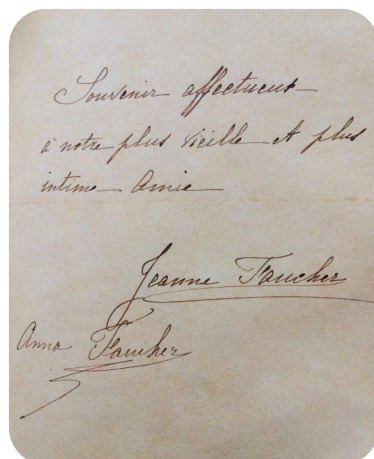 Souvenir affectueux
à notre plus vieille et plus
intime Amie
Jeanne Faucher
Anna Faucher